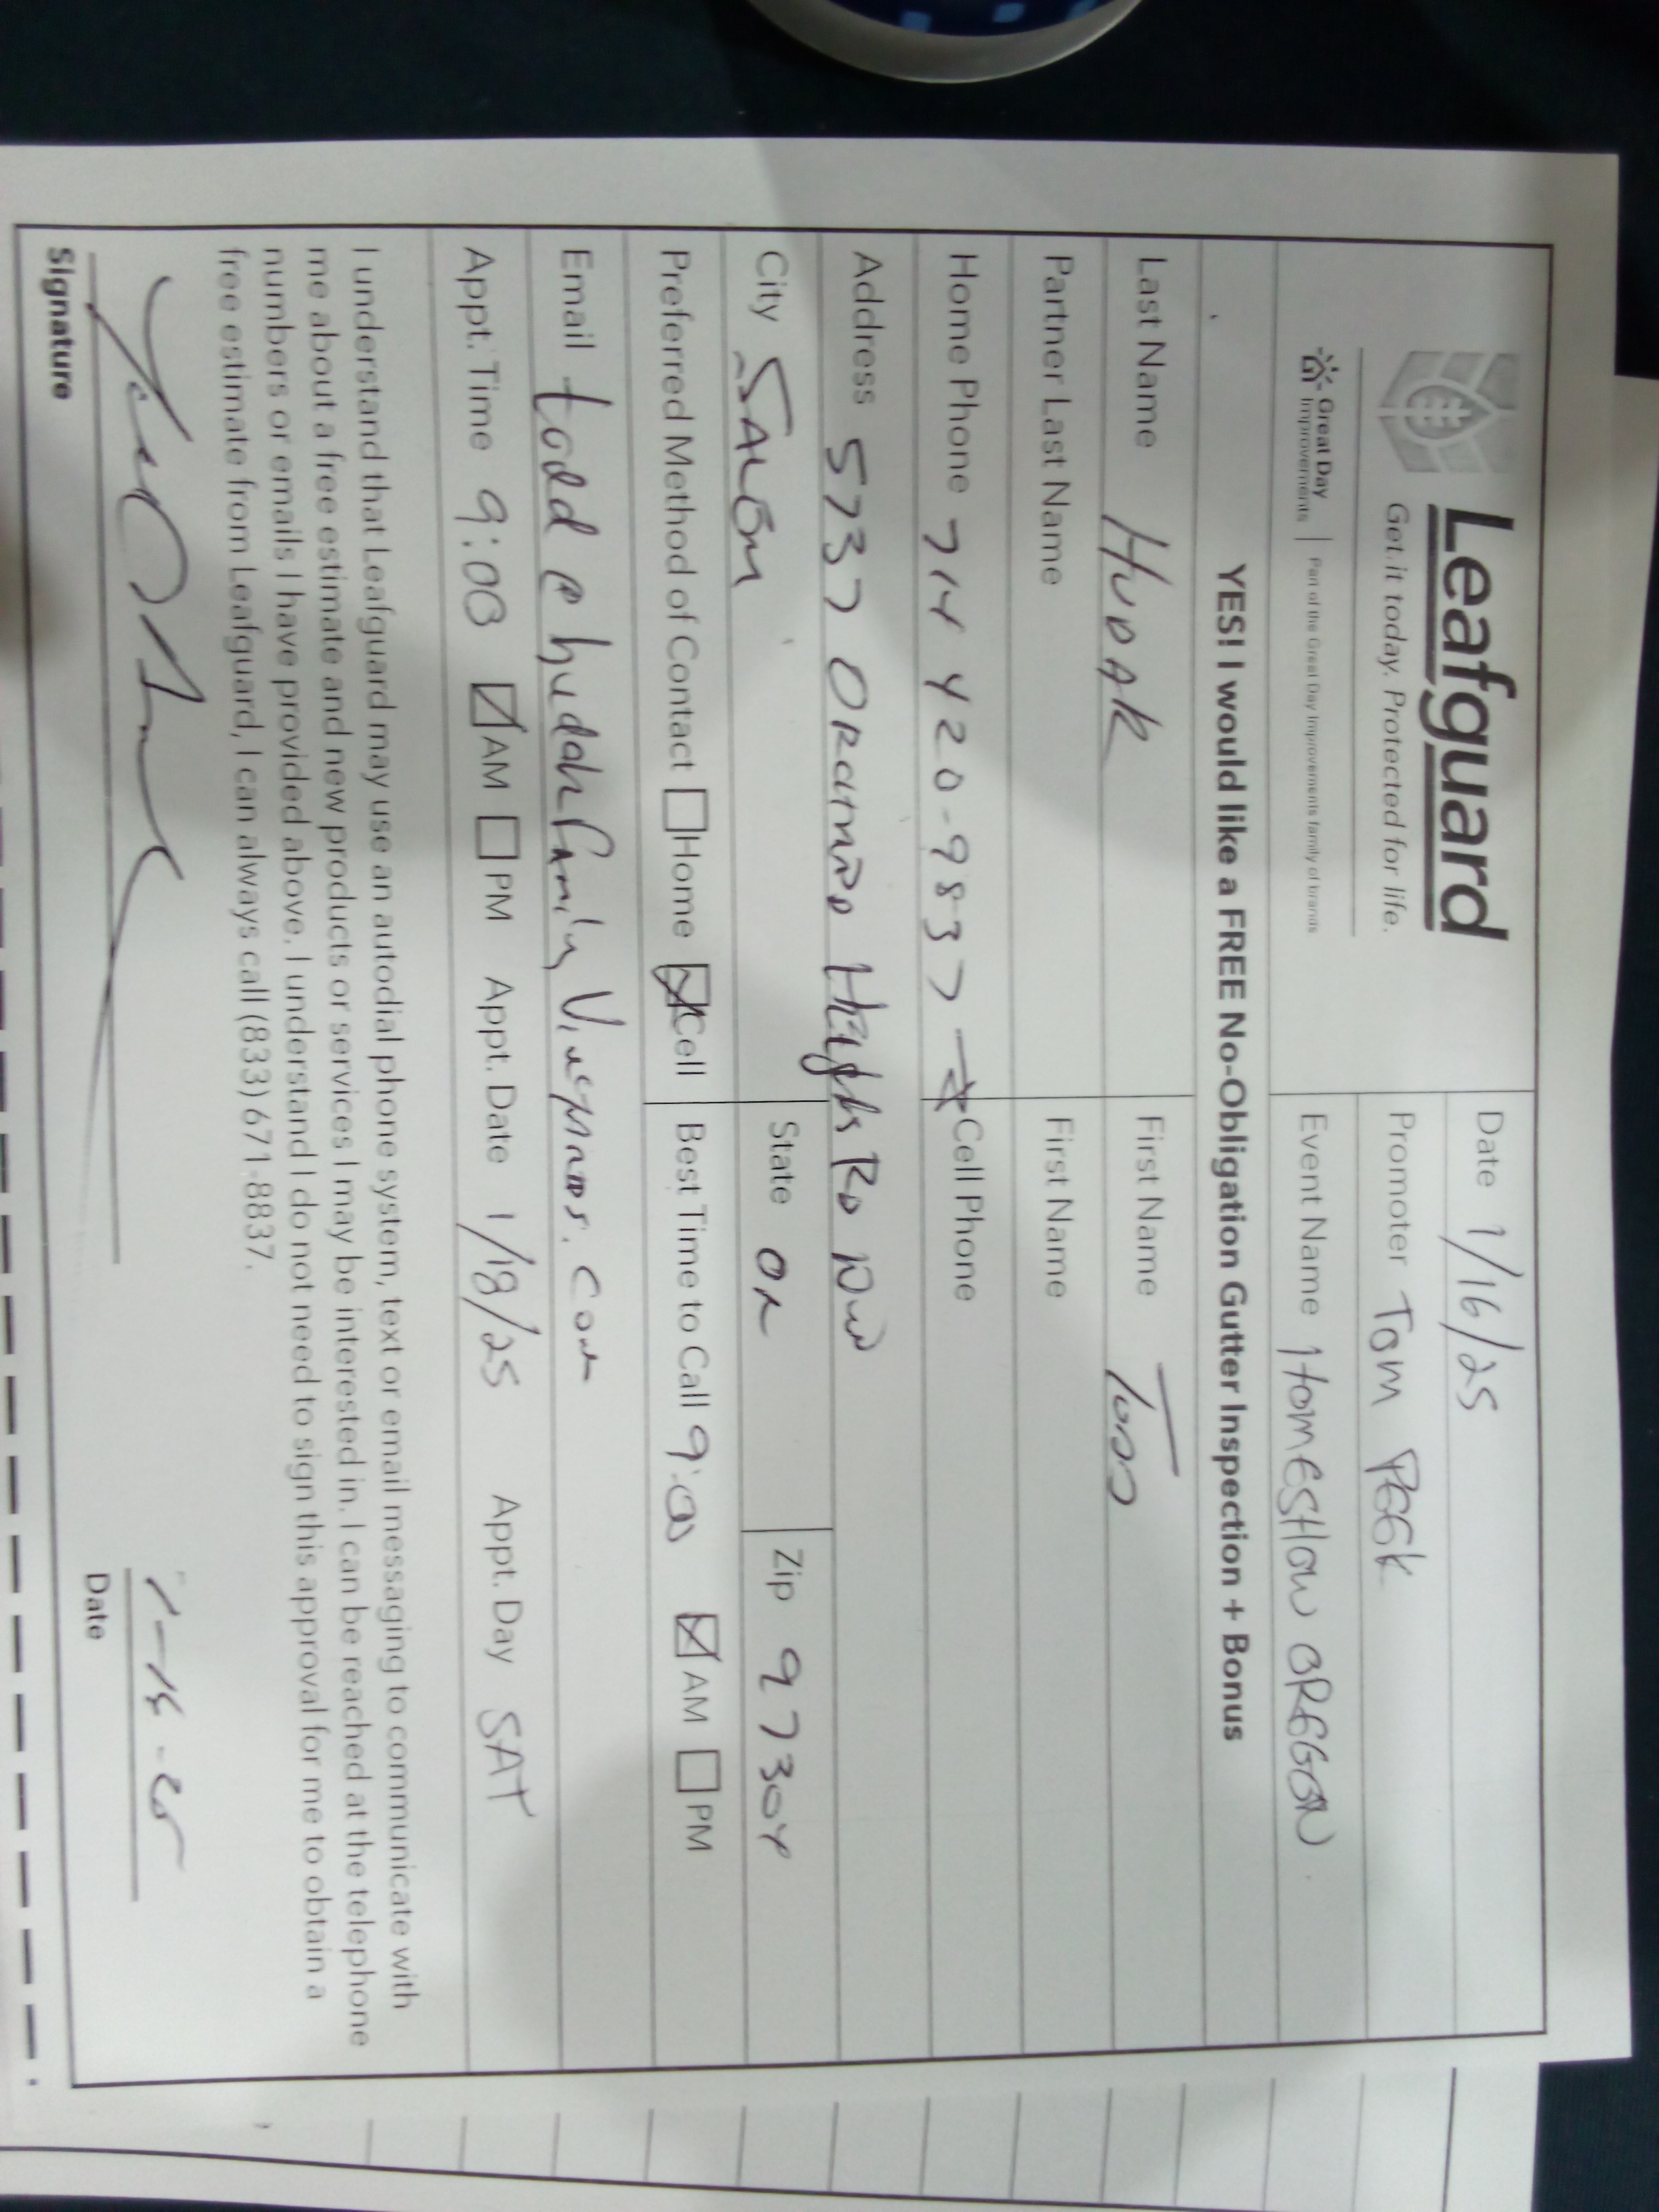 Leafguard
Get it today. Protected for life.
Great Day Improvements | Part of the Great Day Improvements family of brands
Date 1/16/25
Promoter Tom PEEK
Event Name HOMESHOW OREGON
YES! I would like a FREE No-Obligation Gutter Inspection + Bonus
Last Name HUDAK First Name TODD
Partner Last Name First Name
Home Phone 714 420-9837 → Cell Phone
Address 5737 ORCHARD Heights RD NW
City SALEM State OR Zip 97304
Preferred Method of Contact Home Cell Best Time to Call 9:00 AM PM
Email todd@hudakfamilyVineyards.com
Appt. Time 9:00 AM PM Appt. Date 1/18/25 Appt. Day SAT
I understand that Leafguard may use an autodial phone system, text or email messaging to communicate with
me about a free estimate and new products or services I may be interested in. I can be reached at the telephone
numbers or emails I have provided above. I understand I do not need to sign this approval for me to obtain a
free estimate from Leafguard, I can always call (833) 671-8837.
Signature Date